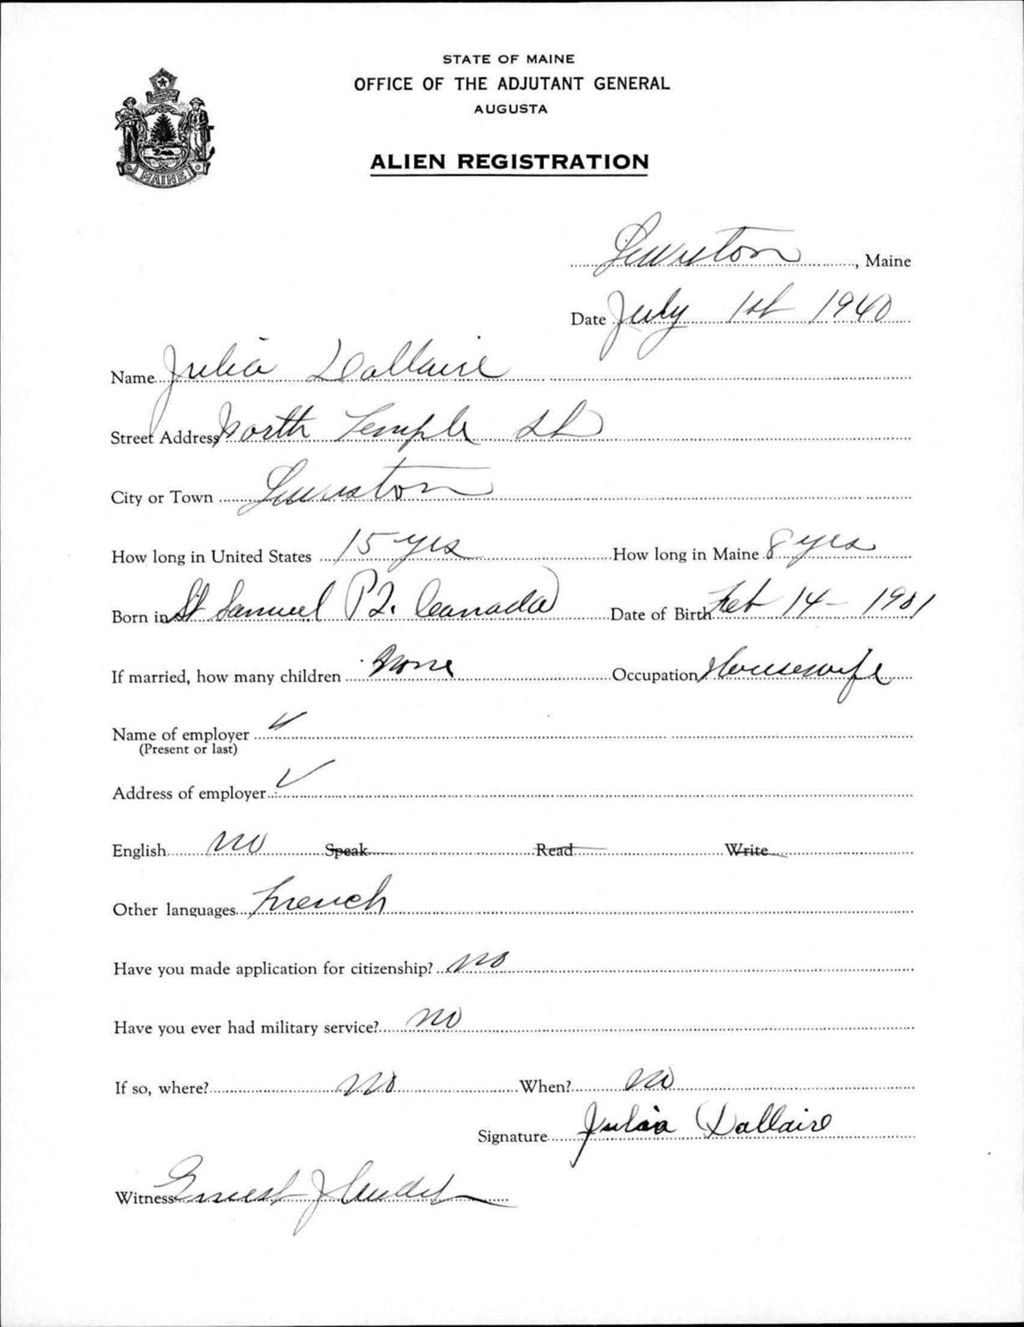 STATE OF MAINE
OFFICE OF THE ADJUTANT GENERAL
AUGUSTA
MAINE
ALIEN REGISTRATION
Lewiston, Maine
Date July 1st 1940
Name Julia Dallaire
Street Address North Temple St
City or Town Lewiston
How long in United States 15 yrs How long in Maine 8 yrs
Born in St Samuel P.Q. Canada Date of Birth Feb 14 - 1901
If married, how many children None Occupation Housewife
Name of employer ✓
(Present or last)
Address of employer ✓
English no Speak Read Write
Other languages French
Have you made application for citizenship? no
Have you ever had military service? no
If so, where? no When? no
Signature Julia Dallaire
Witness Ernest J